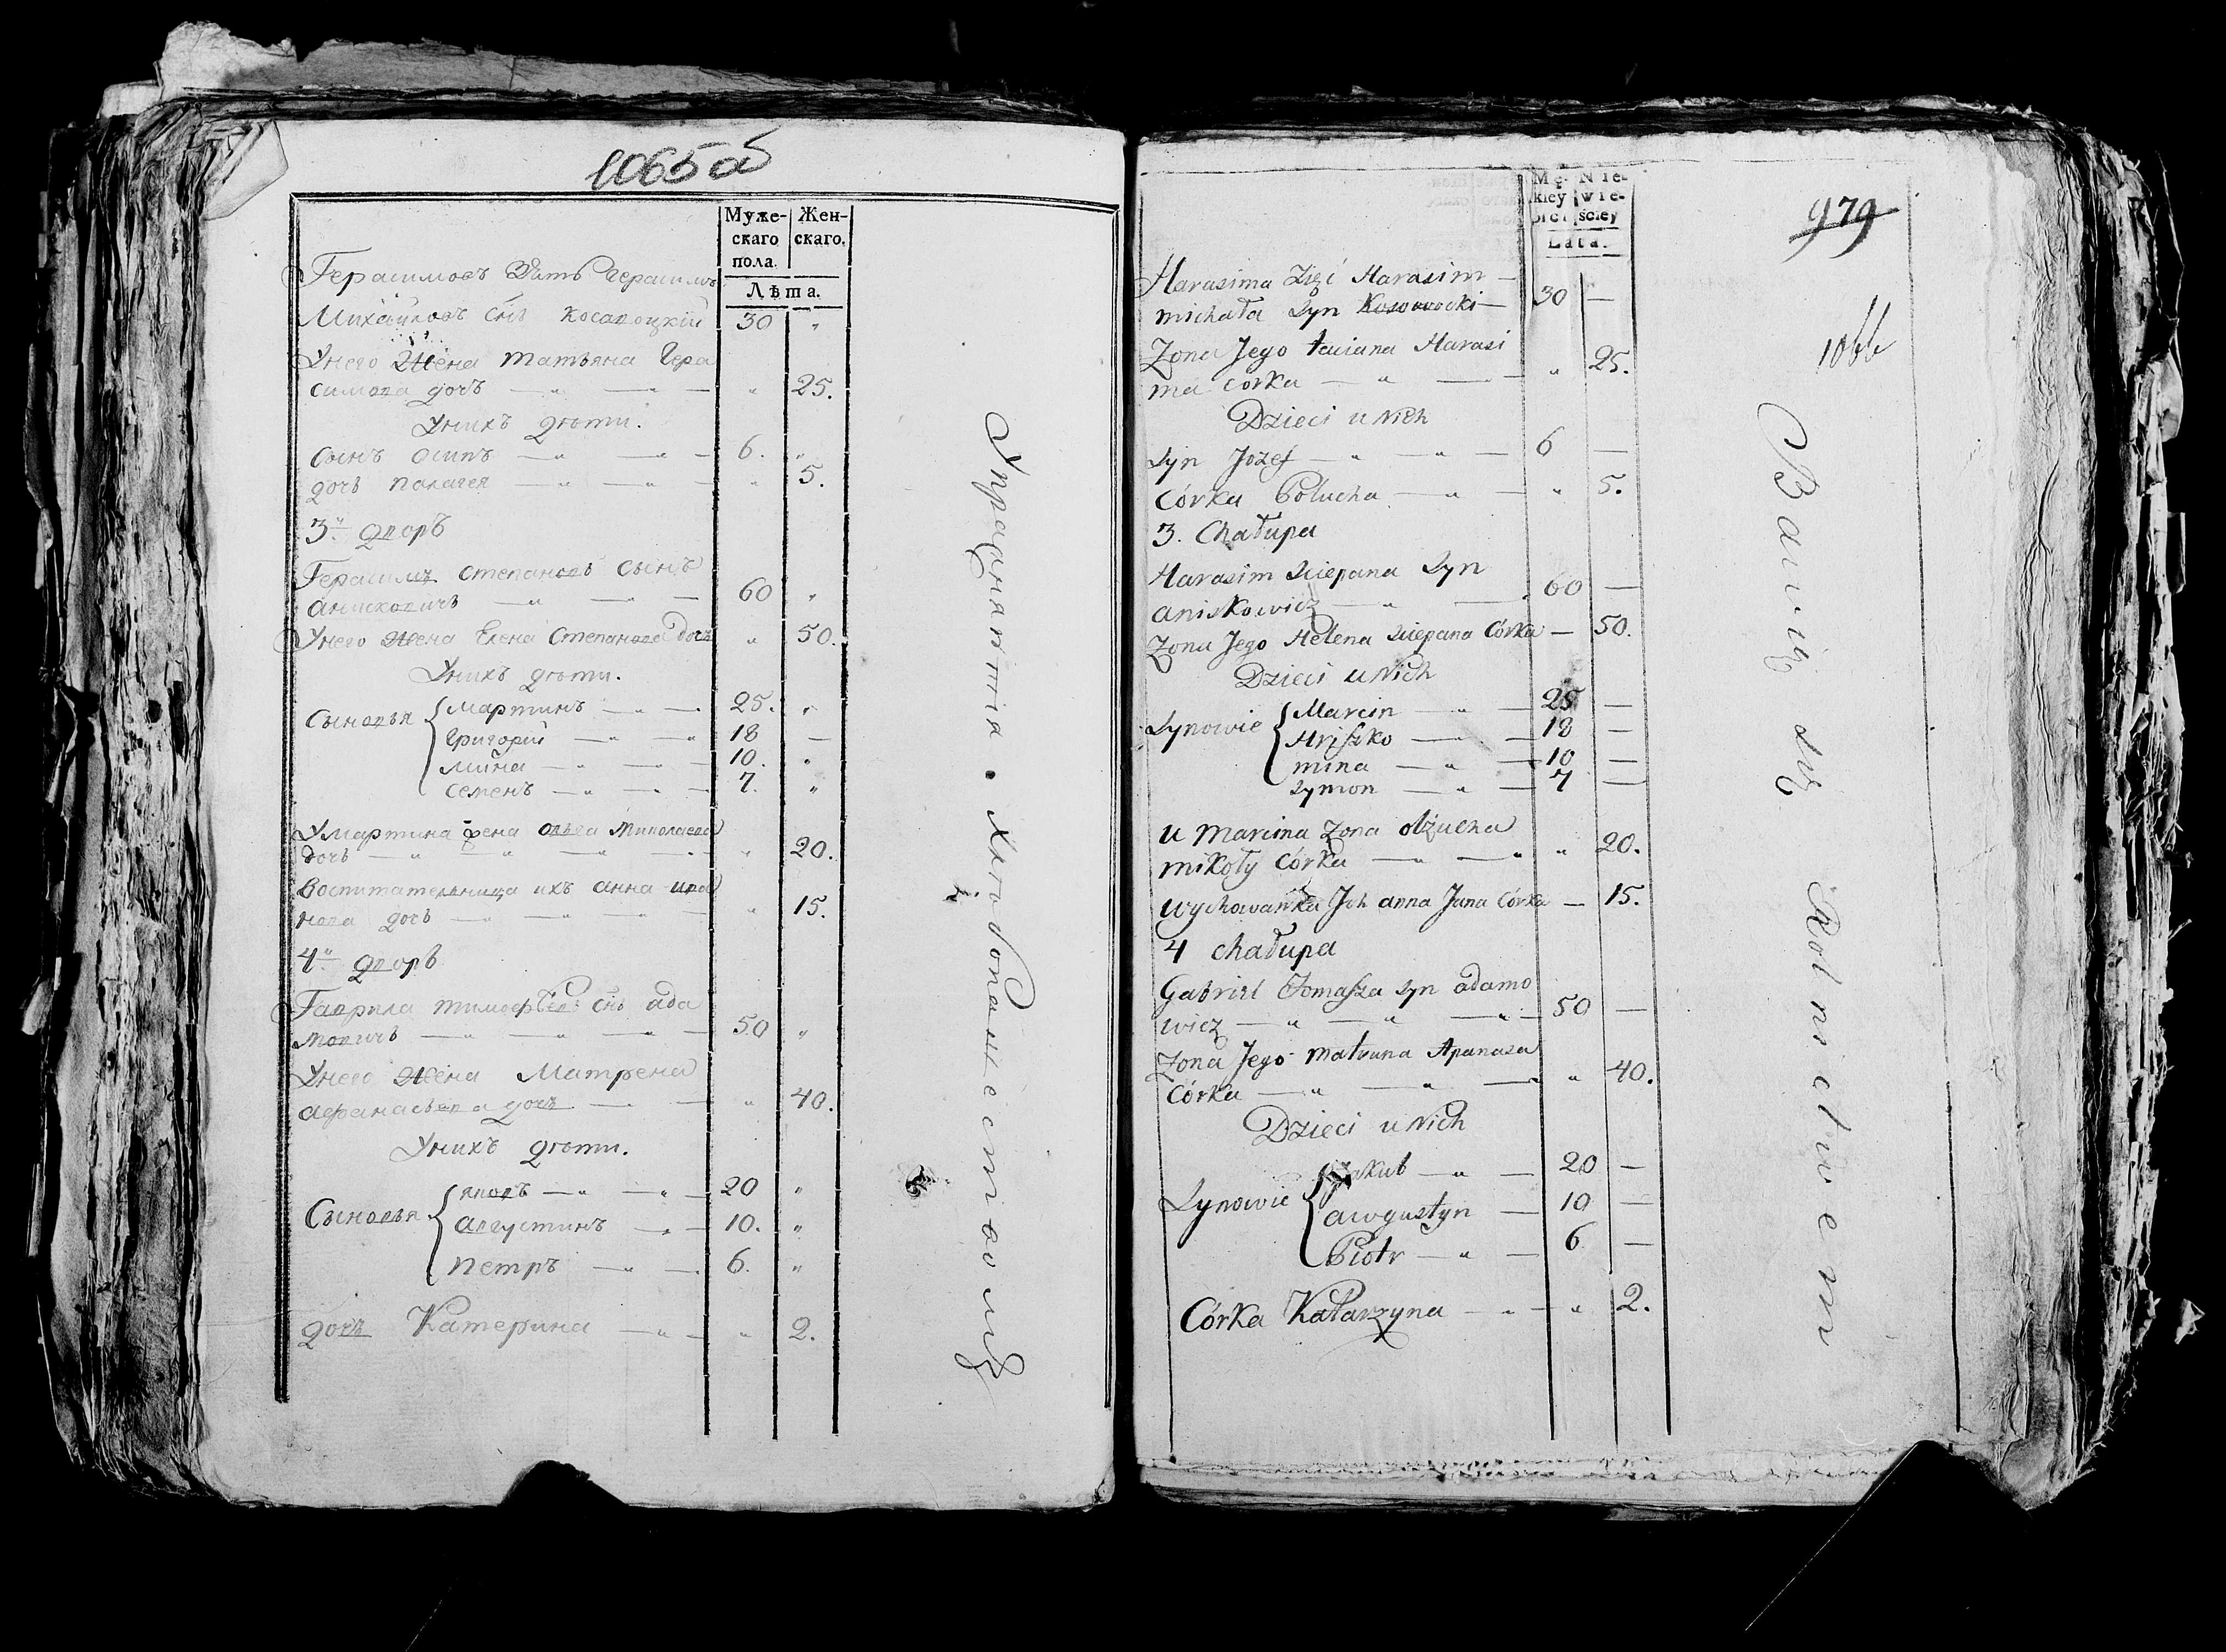 1065об
Муже-
скаго
пола.
Жен-
скаго.
Лѣта.
Герасимовъ Зять Герасимъ
Михайловъ снъ Косавоцкій 30 „
Унего Жена Татьяна Гера
симова дочъ — „ — „ — „ 25.
Унихъ дѣти.
Сынъ Осипъ — „ — „ — 6. „
дочъ Палагея — „ — „ — „ 5.
3й дворъ
Герасимъ Степановъ Сынъ
Анисковичъ — „ — „ — 60 „
Унего Жена Елена Степанова дочъ „ 50.
Унихъ дѣти.
Сыновья { Мартинъ — „ — 25. „
Григорий — „ — 18 —
Мина — „ — „ — 10. „
Семенъ — „ — „ — 7. „
Умартина жена Ольга Миколаева
дочъ — „ — „ — „ — „ 20.
Воспитательница ихъ Анна Ива
нова дочъ — „ — „ — „ 15.
4й дворъ
Гаврила Тимофѣевъ снъ Ада
мовичъ — „ — „ — „ — 50 „
Унего Жена Матрена
Афанасьева дочъ — „ — „ 40.
Унихъ дѣти.
Сыновья { яковъ — „ — „ — 20 „
Августинъ — „ — 10. „
Петръ — „ — 6. „
дочъ Катерина — „ — „ 2.
Упражняются Хлѣбопашествомъ
979
1066
Mę-
kiey
płci
Nie-
wie-
ściey
Lata.
Harasima Zięć Harasim —
michała Syn Kosowocki — 30 —
Zona Jego taciana Harasi
ma corka — „ — „ 25.
Dzieci u Nich
Syn Jozef — „ — „ — 6 —
Córka Połucha — „ — „ 5.
3. Chałupa
Harasim Sciepana Syn
aniskowicz — „ — 60 —
Zona Jego Helena Sciepana Córka — 50.
Dzieci u Nich
Synowie { Marcin — „ — 25 —
Hriszko — „ — 18 —
mina — „ — 10 —
Symon — „ — 7 —
u Marcina Zona olżucha
mikoły Córka — „ — „ „ 20.
wychowanka Jch anna Jana Córka — 15.
4 chałupa
Gabriel Tomasza Syn adamo
wicz — „ — „ — „ — 50 —
Zona Jego matruna Apanasa
Córka — „ — „ — „ 40.
Dzieci u Nich
Synowie { Jakub — „ — 20 —
awgustyn — 10 —
Piotr — „ — 6 —
Córka Katarzyna — „ — „ 2.
Bawią się Rolnictwem